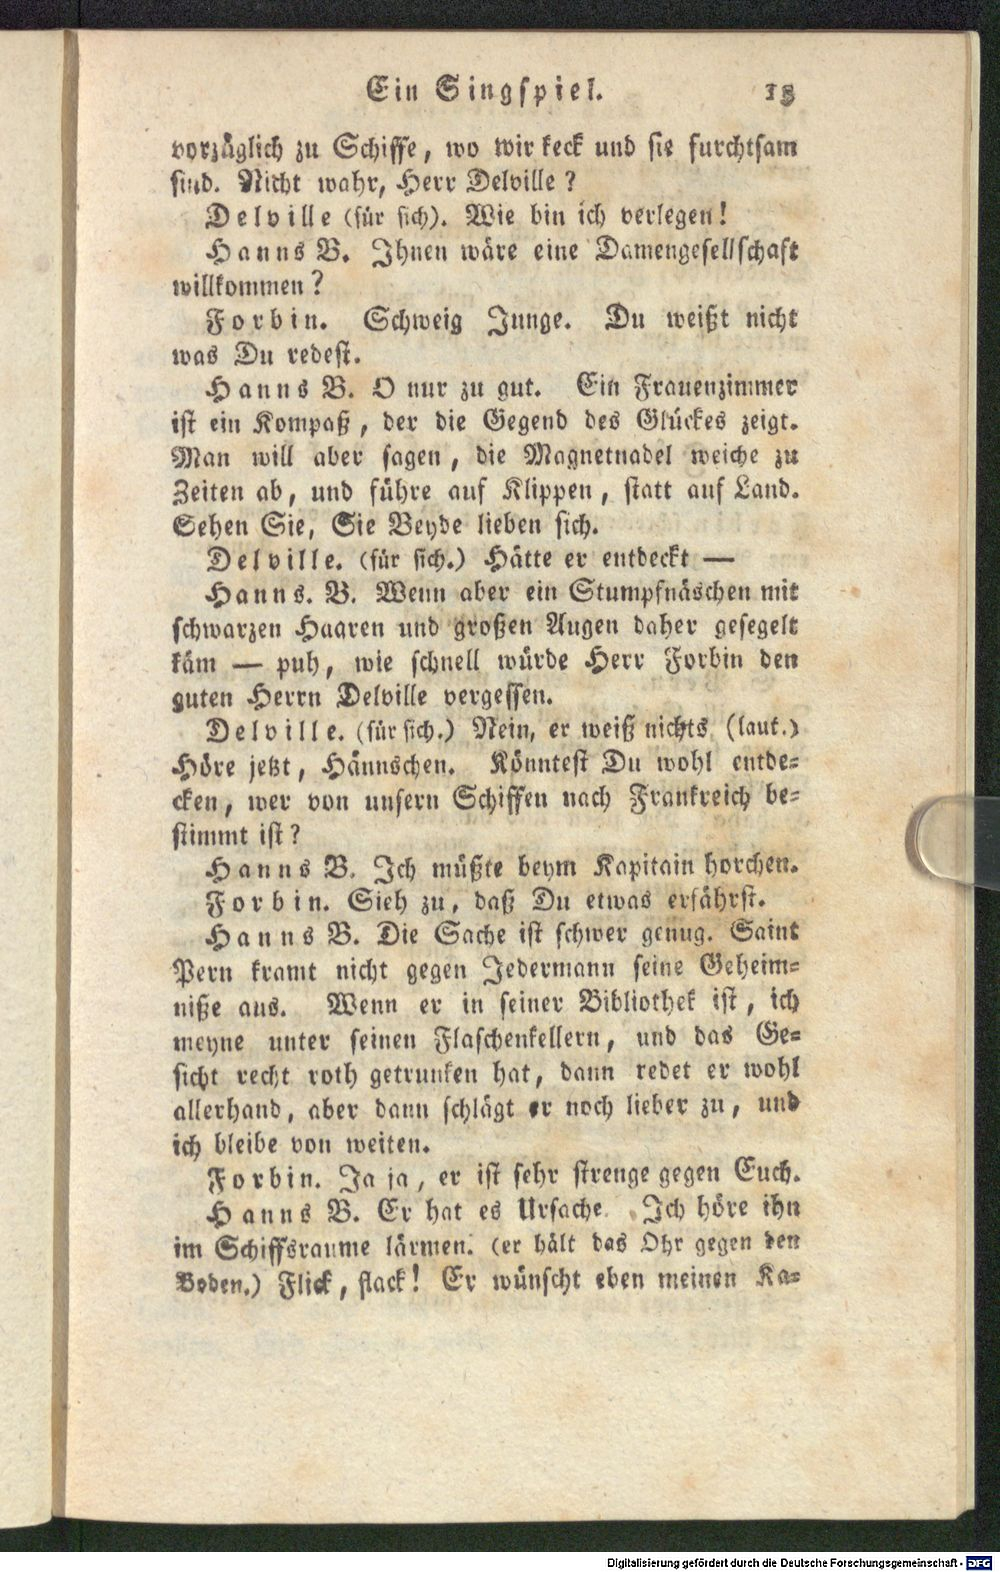 Ein Singspiel. 13
vorzüglich zu Schiffe, wo wir keck und sie furchtsam
sind. Nicht wahr, Herr Delville?
Delville (für sich). Wie bin ich verlegen!
Hanns B. Ihnen wäre eine Damengesellschaft
willkommen?
Forbin. Schweig Junge. Du weißt nicht
was Du redest.
Hanns B. O nur zu gut. Ein Frauenzimmer
ist ein Kompaß, der die Gegend des Glückes zeigt.
Man will aber sagen, die Magnetnadel weiche zu
Zeiten ab, und führe auf Klippen, statt auf Land.
Sehen Sie, Sie Beyde lieben sich.
Delville. (für sich.) Hätte er entdeckt —
Hanns. B. Wenn aber ein Stumpfnäschen mit
schwarzen Haaren und großen Augen daher gesegelt
käm — puh, wie schnell würde Herr Forbin den
guten Herrn Delville vergessen.
Delville. (für sich.) Nein, er weiß nichts (laut.)
Höre jetzt, Hännschen. Könntest Du wohl entde=
cken, wer von unsern Schiffen nach Frankreich be=
stimmt ist?
Hanns B. Ich müßte beym Kapitain horchen.
Forbin. Sieh zu, daß Du etwas erfährst.
Hanns B. Die Sache ist schwer genug. Saint
Pern kramt nicht gegen Jedermann seine Geheim=
niße aus. Wenn er in seiner Bibliothek ist, ich
meyne unter seinen Flaschenkellern, und das Ge=
sicht recht roth getrunken hat, dann redet er wohl
allerhand, aber dann schlägt er noch lieber zu, und
ich bleibe von weiten.
Forbin. Ja ja, er ist sehr strenge gegen Euch.
Hanns B. Er hat es Ursache. Ich höre ihn
im Schiffsraume lärmen. (er hält das Ohr gegen den
Boden.) Flick, flack! Er wünscht eben meinen Ka=
Digitalisierung gefördert durch die Deutsche Forschungsgemeinschaft - DFG